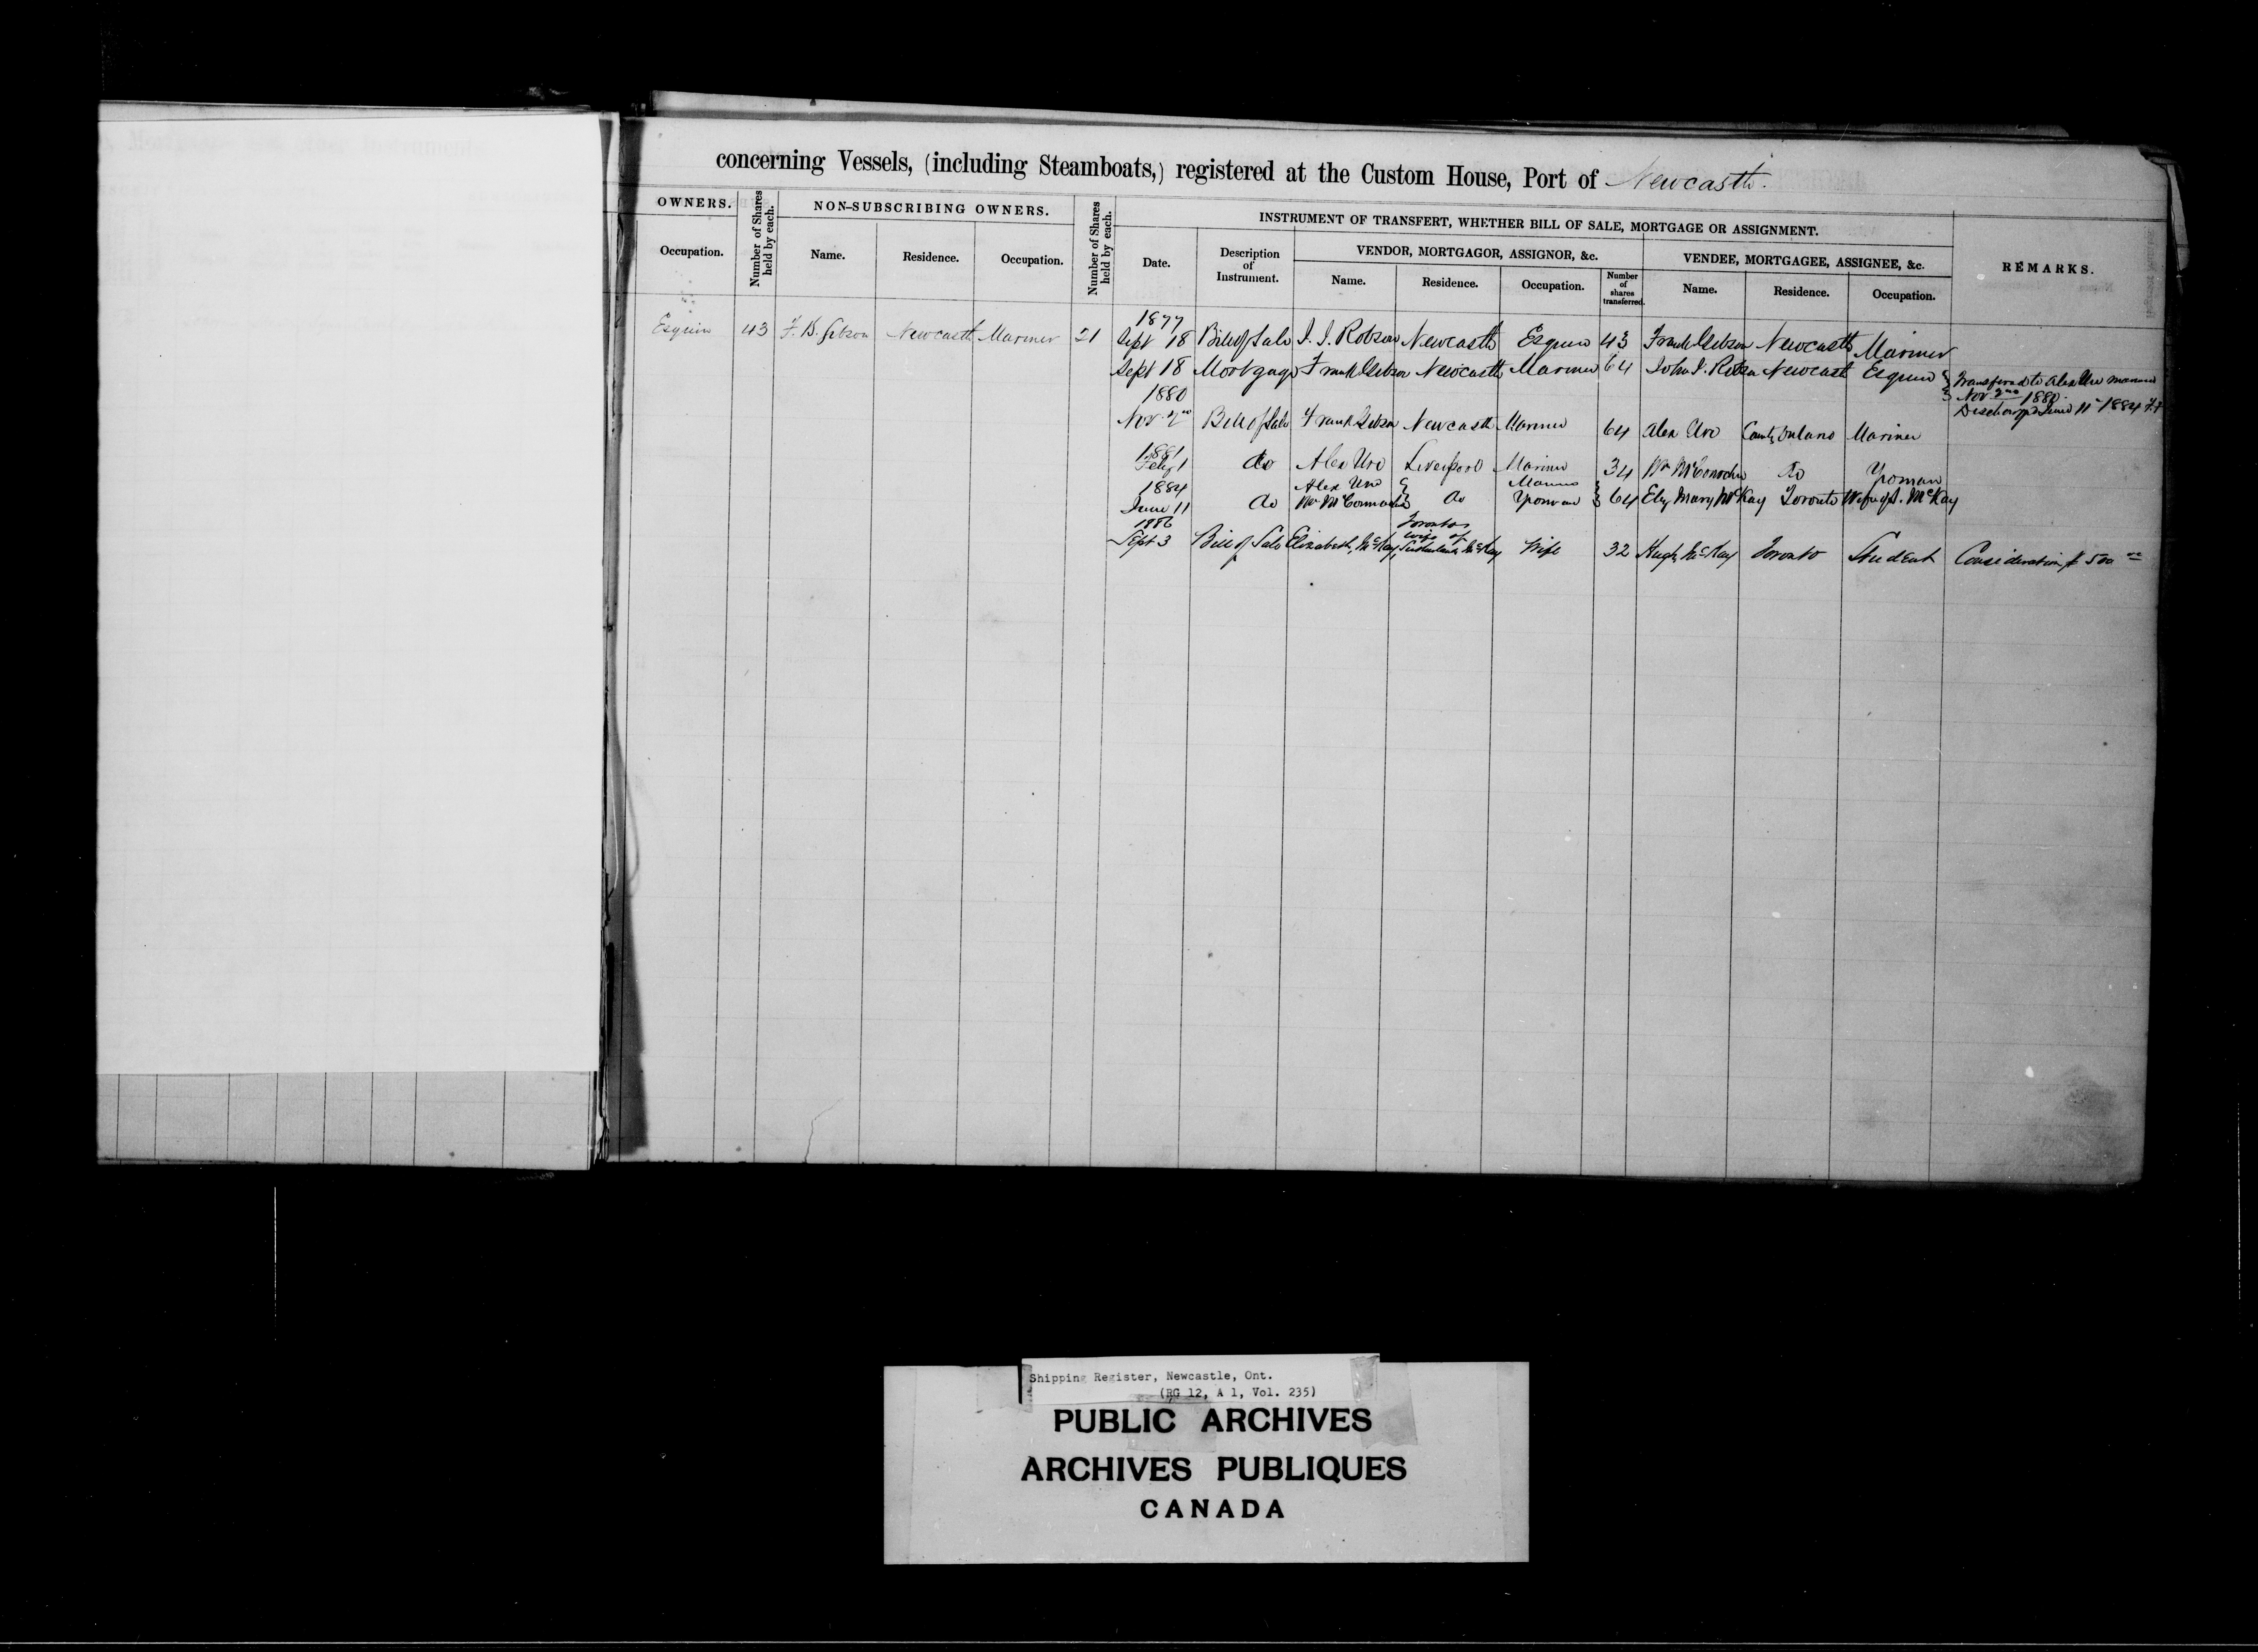 concerning Vessels, (including Steamboats,) registered at the Custom House, Port of Newcastle.
OWNERS.
Number of Shares held by each.
NON-SUBSCRIBING OWNERS.
Number of Shares held by each.
INSTRUMENT OF TRANSFERT, WHETHER BILL OF SALE, MORTGAGE OR ASSIGNMENT.
REMARKS.
Occupation.
Name.
Residence.
Occupation.
Date.
Description of Instrument.
VENDOR, MORTGAGOR, ASSIGNOR, &c.
VENDEE, MORTGAGEE, ASSIGNEE, &c.
Name.
Residence.
Occupation.
Number of shares transferred.
Name.
Residence.
Occupation.
Esquire 43 F. B. Gibson Newcastle Mariner 21
1877
Sept 18 Bill of Sale J. J. Robson Newcastle Esquire 43 Frank Gibson Newcastle Mariner
Sept 18 Mortgage Frank Gibson Newcastle Mariner 64 John J. Robson Newcastle Esquire
Transferred to Alex Ure mariner
Nov 2nd 1880.
Discharged June 11th 1884
1880
Nov 2nd Bill of Sale Frank Gibson Newcastle Mariner 64 Alex Ure Mariner
1881
Feby 1 do Alex Ure Liverpool Mariner 34 Wm do Yoman
1884
June 11 do Alex Ure Mariner
Wm do Yoman 64 Eliz Mary McKay Toronto Wife of S. McKay
1886
Sept 3 Bill of Sale Elizabeth McKay Toronto wife of Sutherland McKay Wife 32 Hugh McKay Toronto Student Consideration $500 00
Shipping Register, Newcastle, Ont.
(RG 12, A 1, Vol. 235)
PUBLIC ARCHIVES
ARCHIVES PUBLIQUES
CANADA